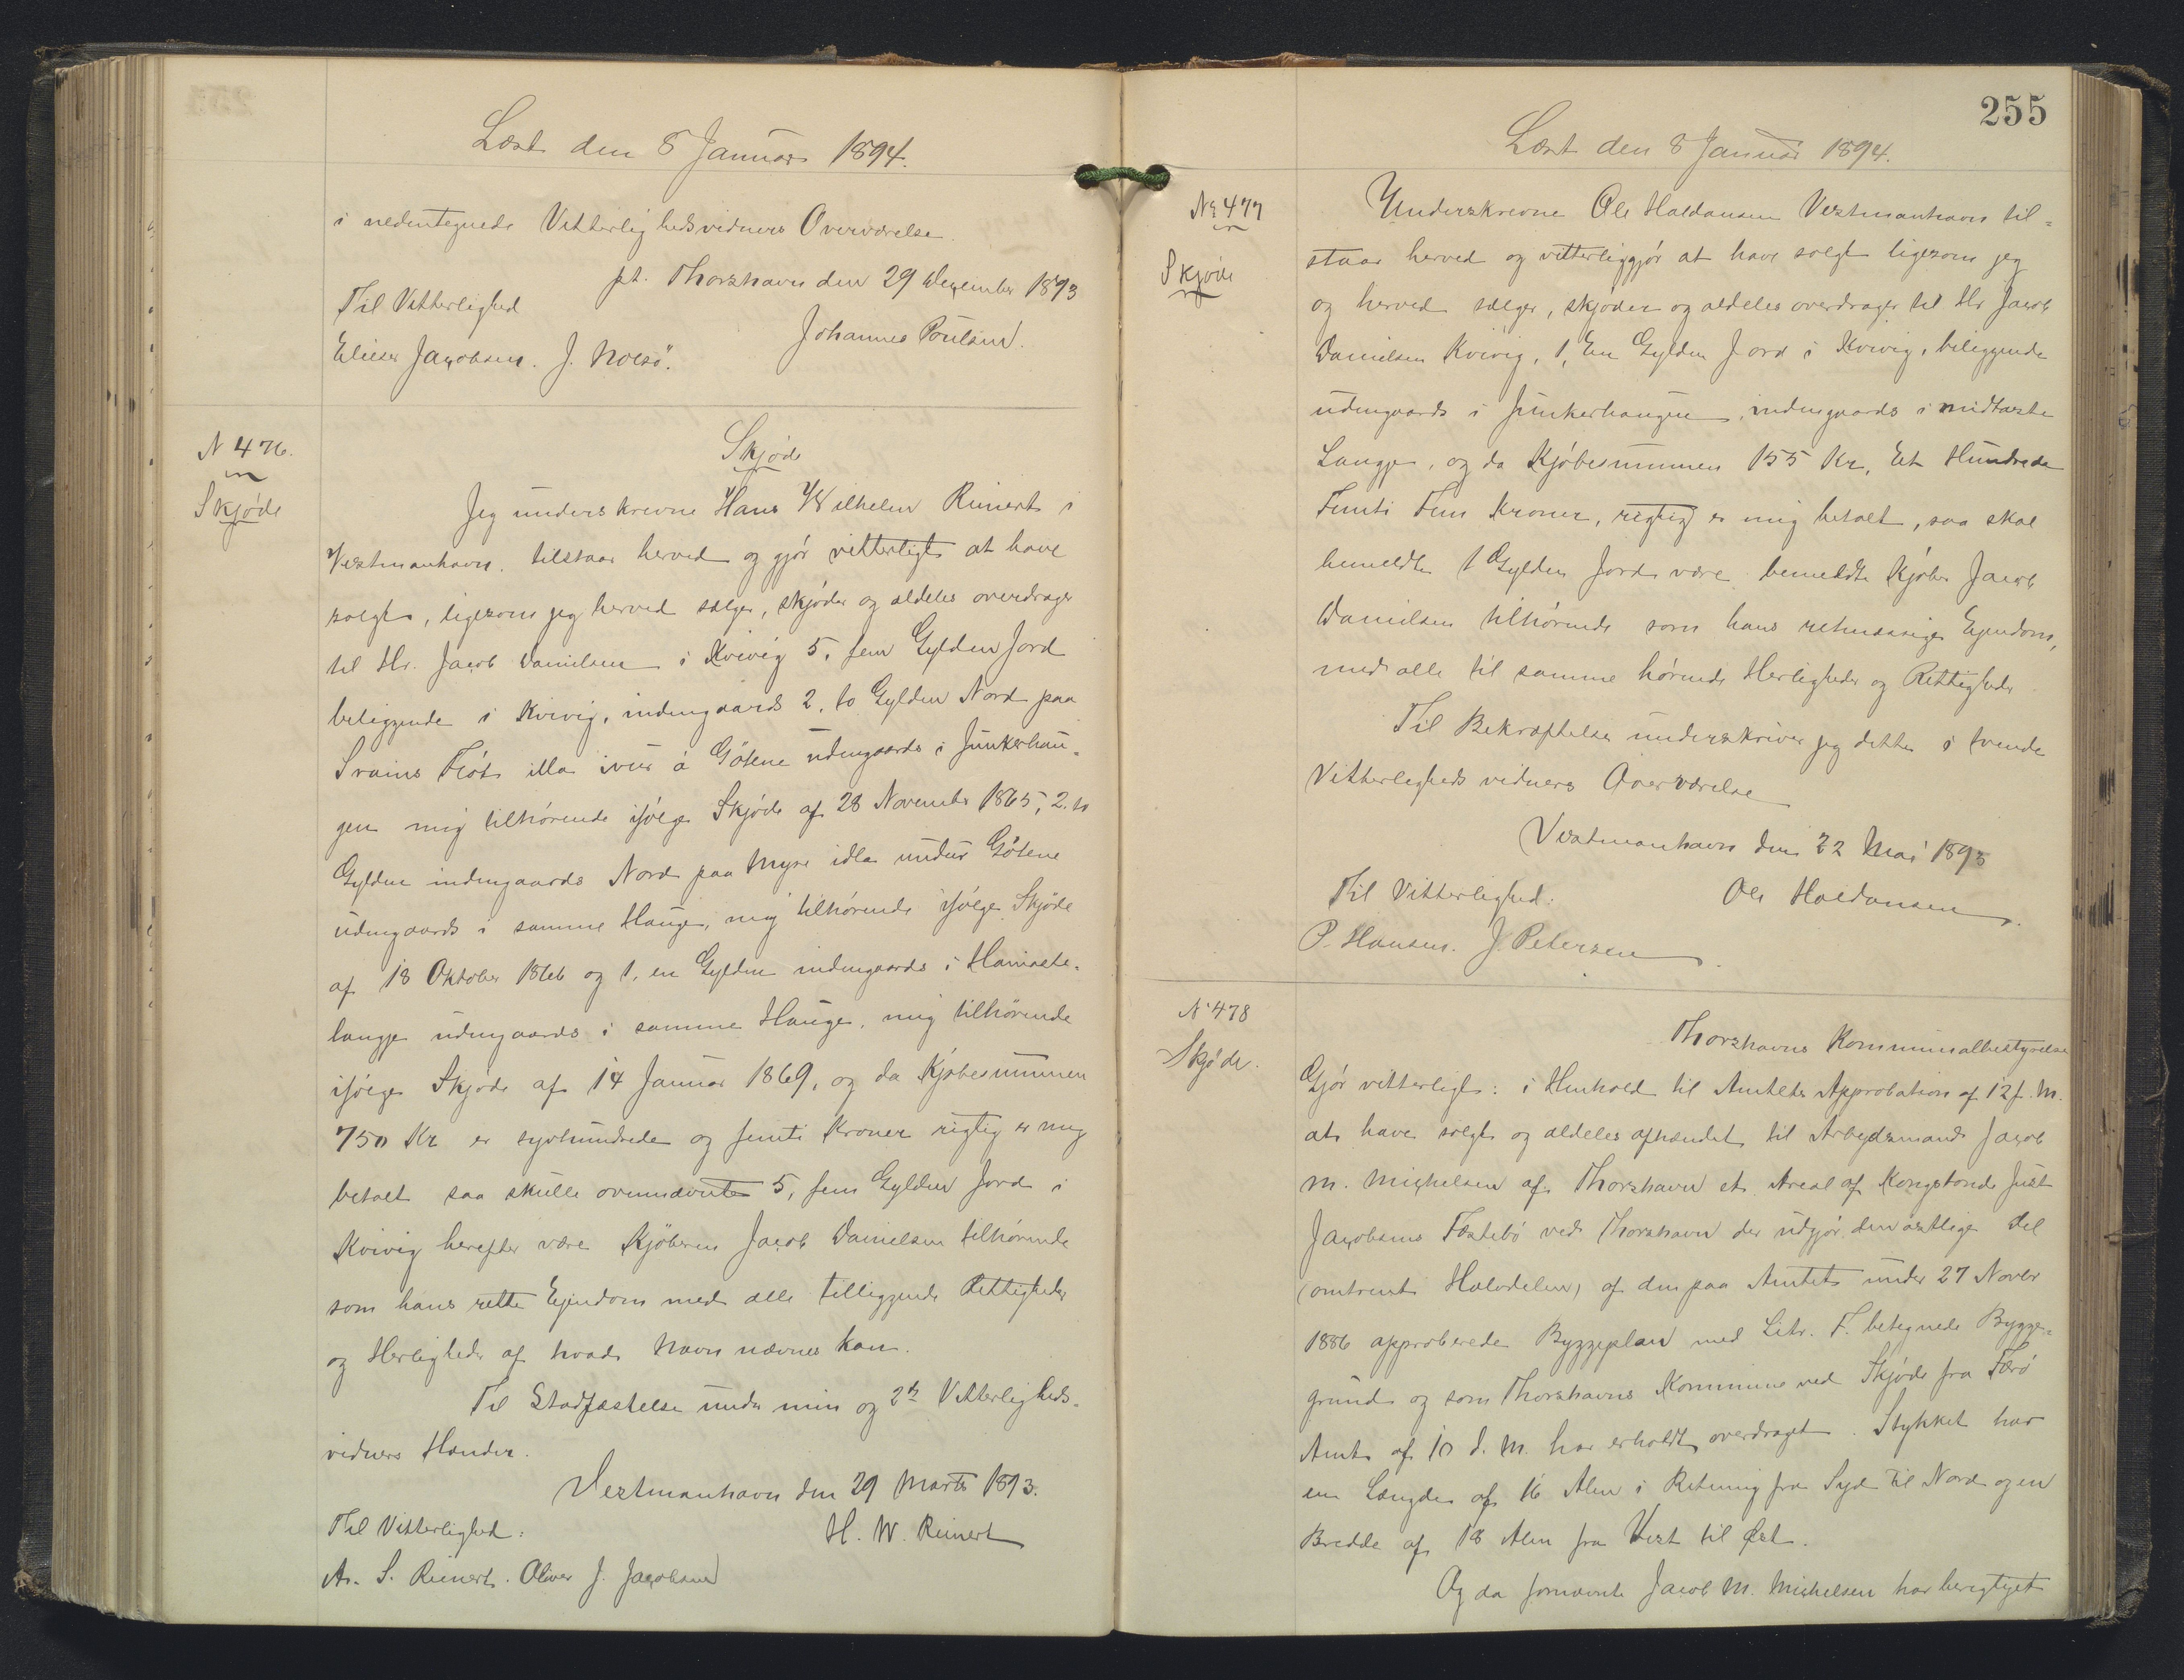 Læst den 8 Januar 1894.
i nedentegnede Vitterlighedsvidners Overværelse.
pt. Thorshavn den 29 December 1893
Til Vitterlighed
Johannes Poulsen.
Elieser Jacobsen. J. Nolsö.
N 476.
Skjøde
Skjøde
Jeg underskrevne Hans Wilhelm Reinert i
Vestmanhavn, tilstaar herved og gjør vitterligt at have
solgt, ligesom jeg herved sælger, skjøder og aldeles overdrager
til Hr. Jacob Danielsen i Kvivig 5, fem Gylden Jord
beliggende i Kvivig, indengaards 2, to Gylden Nord paa
Svains Fløt illa ivur á Gótene udengaards i Junkerhau-
gen mig tilhørende ifølge Skjøde af 28 November 1865, 2. to
Gylden indengaards Nord paa Myre idla undur Gótene
udengaards i samme Hauge, mig tilhørende ifølge Skjøde
af 18 Oktober 1866 og 1, en Gylden indengaards i
langje udengaards i samme Hauge, mig tilhørende
ifølge Skjøde af 14 Januar 1869, og da Kjøbesummen
750 Kr er syvhundrede og femti Kroner rigtig er mig
betalt saa skulle ovennævnte 5, fem Gylden Jord i
Kvivig herefter være Kjøberen Jacob Danielsen tilhørende
som hans rette Ejendom med alle tilliggende Rettigheder
og Herligheder af hvad Navn nævnes kan.
Til Stadfæstelse under min og 2de Vitterligheds-
vidners Hænder.
Vestmanhavn den 29 Marts 1893.
Til Vitterlighed:
H. W. Reinert
A. S. Reinert. Oliver J. Jacobsen
255
Læst den 8 Januar 1894.
No 477
Skjøde
Underskrevne Ole Haldansen Vestmanhavn til-
staar herved og vitterliggjør at have solgt ligesom jeg
og herved sælger, skjøder og aldeles overdrager til Hr Jacob
Danielsen Kvivig, 1, En Gylden Jord i Kvivig, beliggende
udengaards i Junkerhaugen, indengaards i midtarste
Langje, og da Kjøbesummen 155 Kr, Et Hundrede
Femti Fem Kroner, rigtig er mig betalt, saa skal
bemeldte 1 Gylden Jord være bemeldte Kjøber Jacob
Danielsen tilhørende som hans retmæssige Ejendom,
med alle til samme hørende Herligheder og Rettigheder.
Til Bekræftelse underskriver jeg dette i tvende
Vitterligheds vidners Overværelse
Vestmanhavn den 22 Mai 1893
Til Vitterlighed:
Ole Haldansen.
P. Hansen. J. Petersen.
N 478
Skjøde.
Thorshavns Kommunalbestyrelse
Gjør vitterligt: i Henhold til Amtets Approbation af 12 f. M.
at have solgt og aldeles afhændet til Arbejdsmand Jacob
M. Michelsen af Thorshavn et Areal af Kongsbonde Just
Jacobsens Fæstebø ved Thorshavn der udgjør den østlige Del
(omtrent Halvdelen) af den paa Amtets under 27 Novbr
1886 approberede Byggeplan med Litr. F. betegnede Bygge-
grund og som Thorshavns Kommune ved Skjøde fra Færø
Amt af 10 d. M. har erholdt overdraget. Stykket har
en Længde af 16 Alen i Retning fra Syd til Nord og en
Bredde af 18 Alen fra Vest til Øst.
Og da fornævnte Jacob M. Michelsen har berigtiget